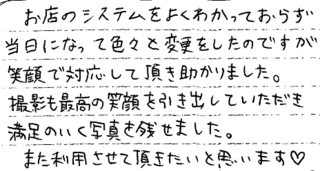 お店のシステムをよくわかっておらず
当日になって色々と変更をしたのですが
笑顔で対応して頂き助かりました。
撮影も最高の笑顔を引き出していただき
満足のいく写真を残せました。
また利用させて頂きたいと思います♡